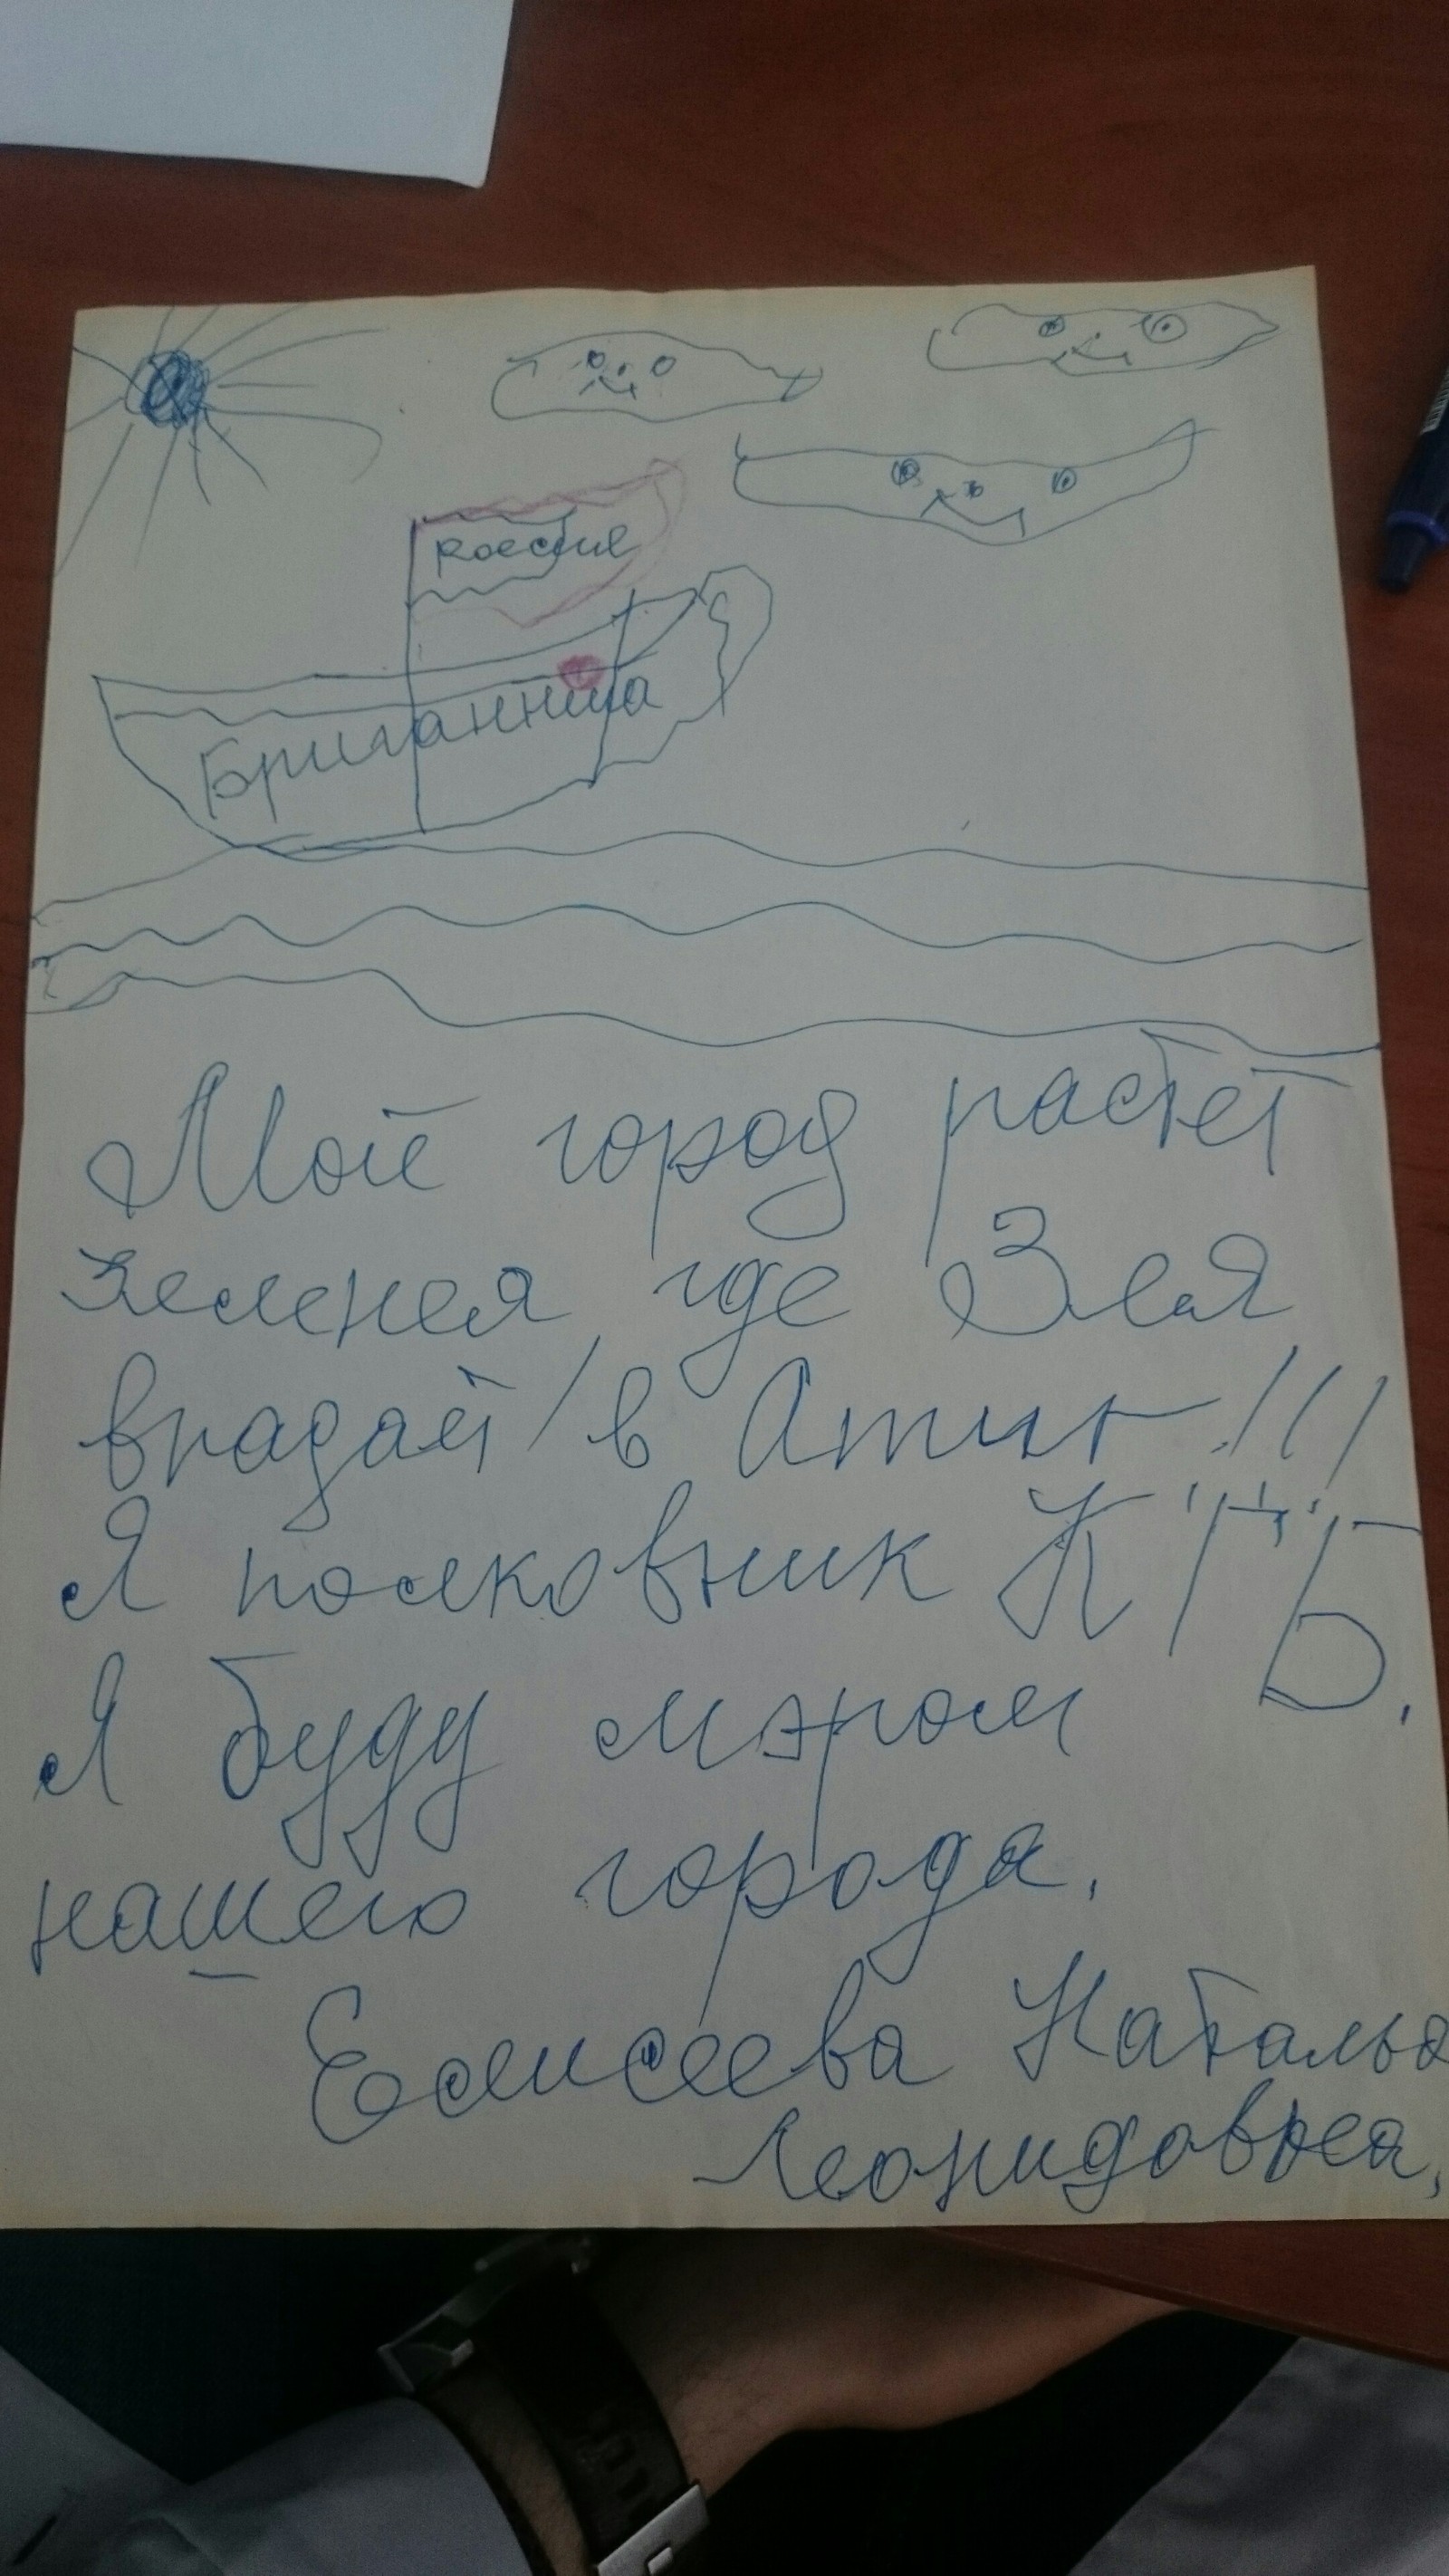 Россия
Британниа
Мой город растёт
зеленея, где Зея
впадает в Амур!!!
Я полковник КГБ.
Я буду мэром
нашего города.
Елисеева Наталья
Леонидовна.